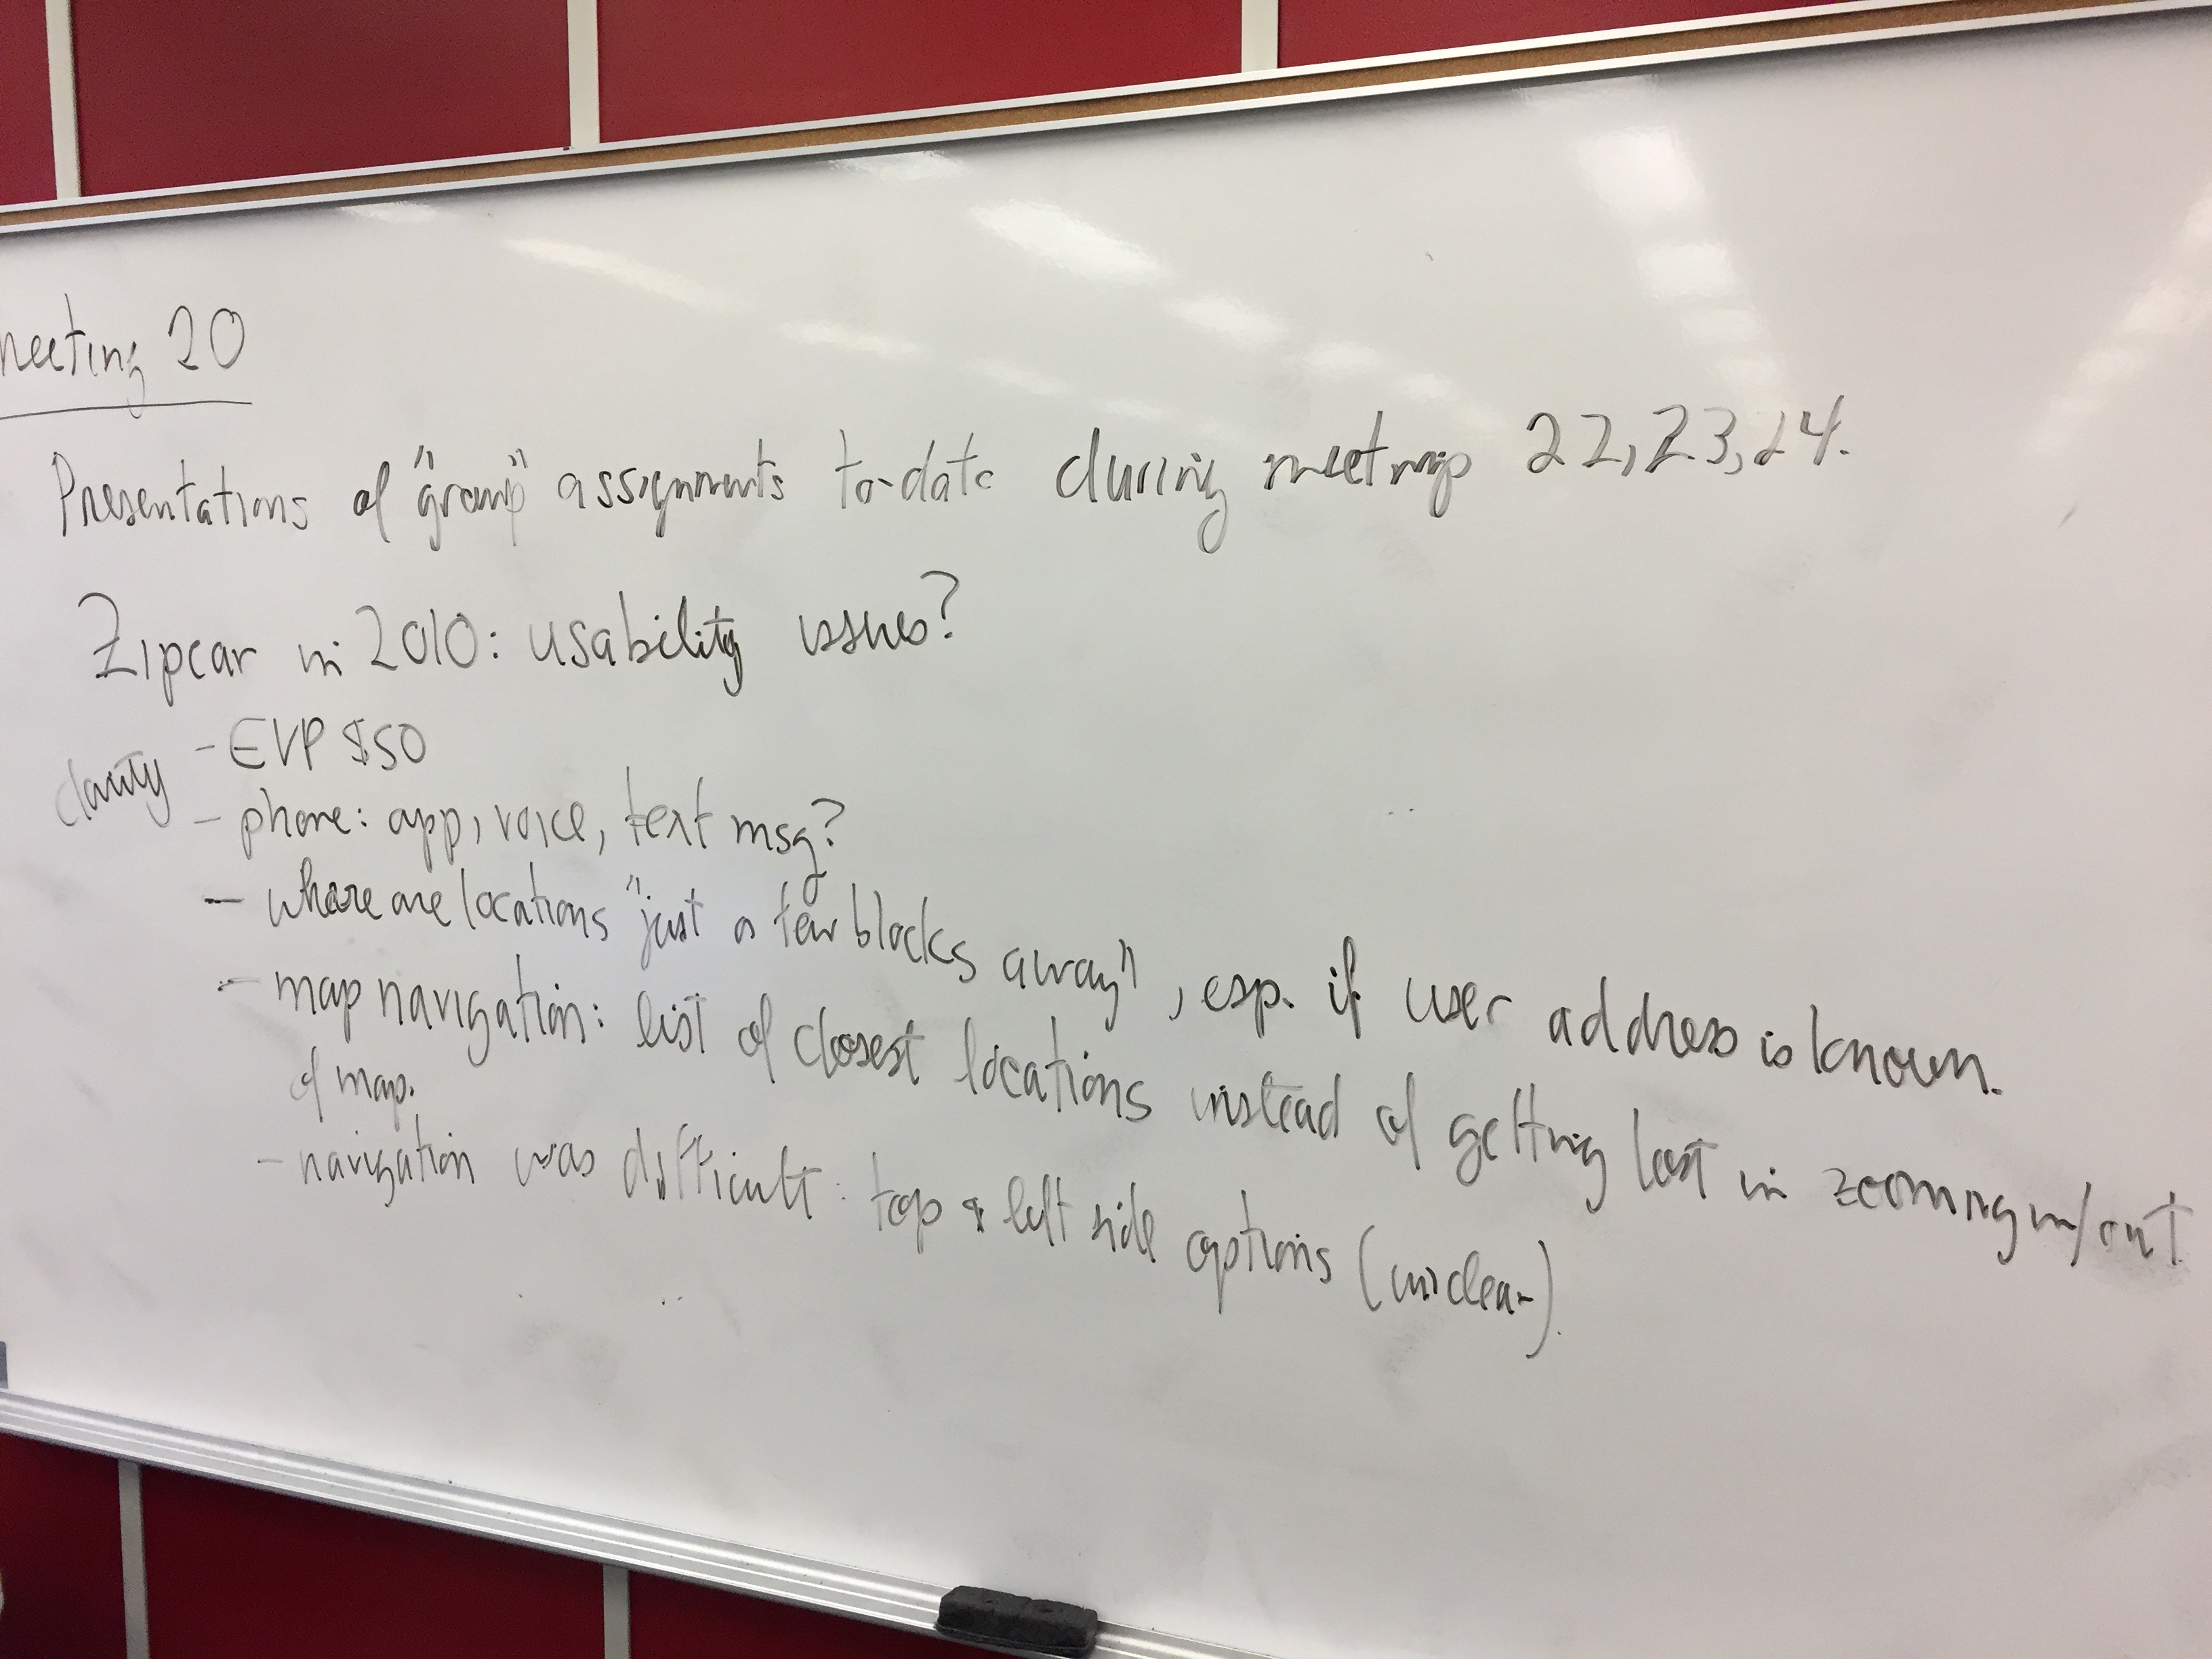 meeting 20
Presentations of "group" assignments to-date during meetings 22, 23, 24.
Zipcar in 2010: usability issues?
clarity - EVP $50
- phone: app, voice, text msg?
- where are locations "just a few blocks away", esp. if user address is known.
- map navigation: list of closest locations instead of getting lost in zooming in/out
of map.
- navigation was difficult: top & left side options (unclear).